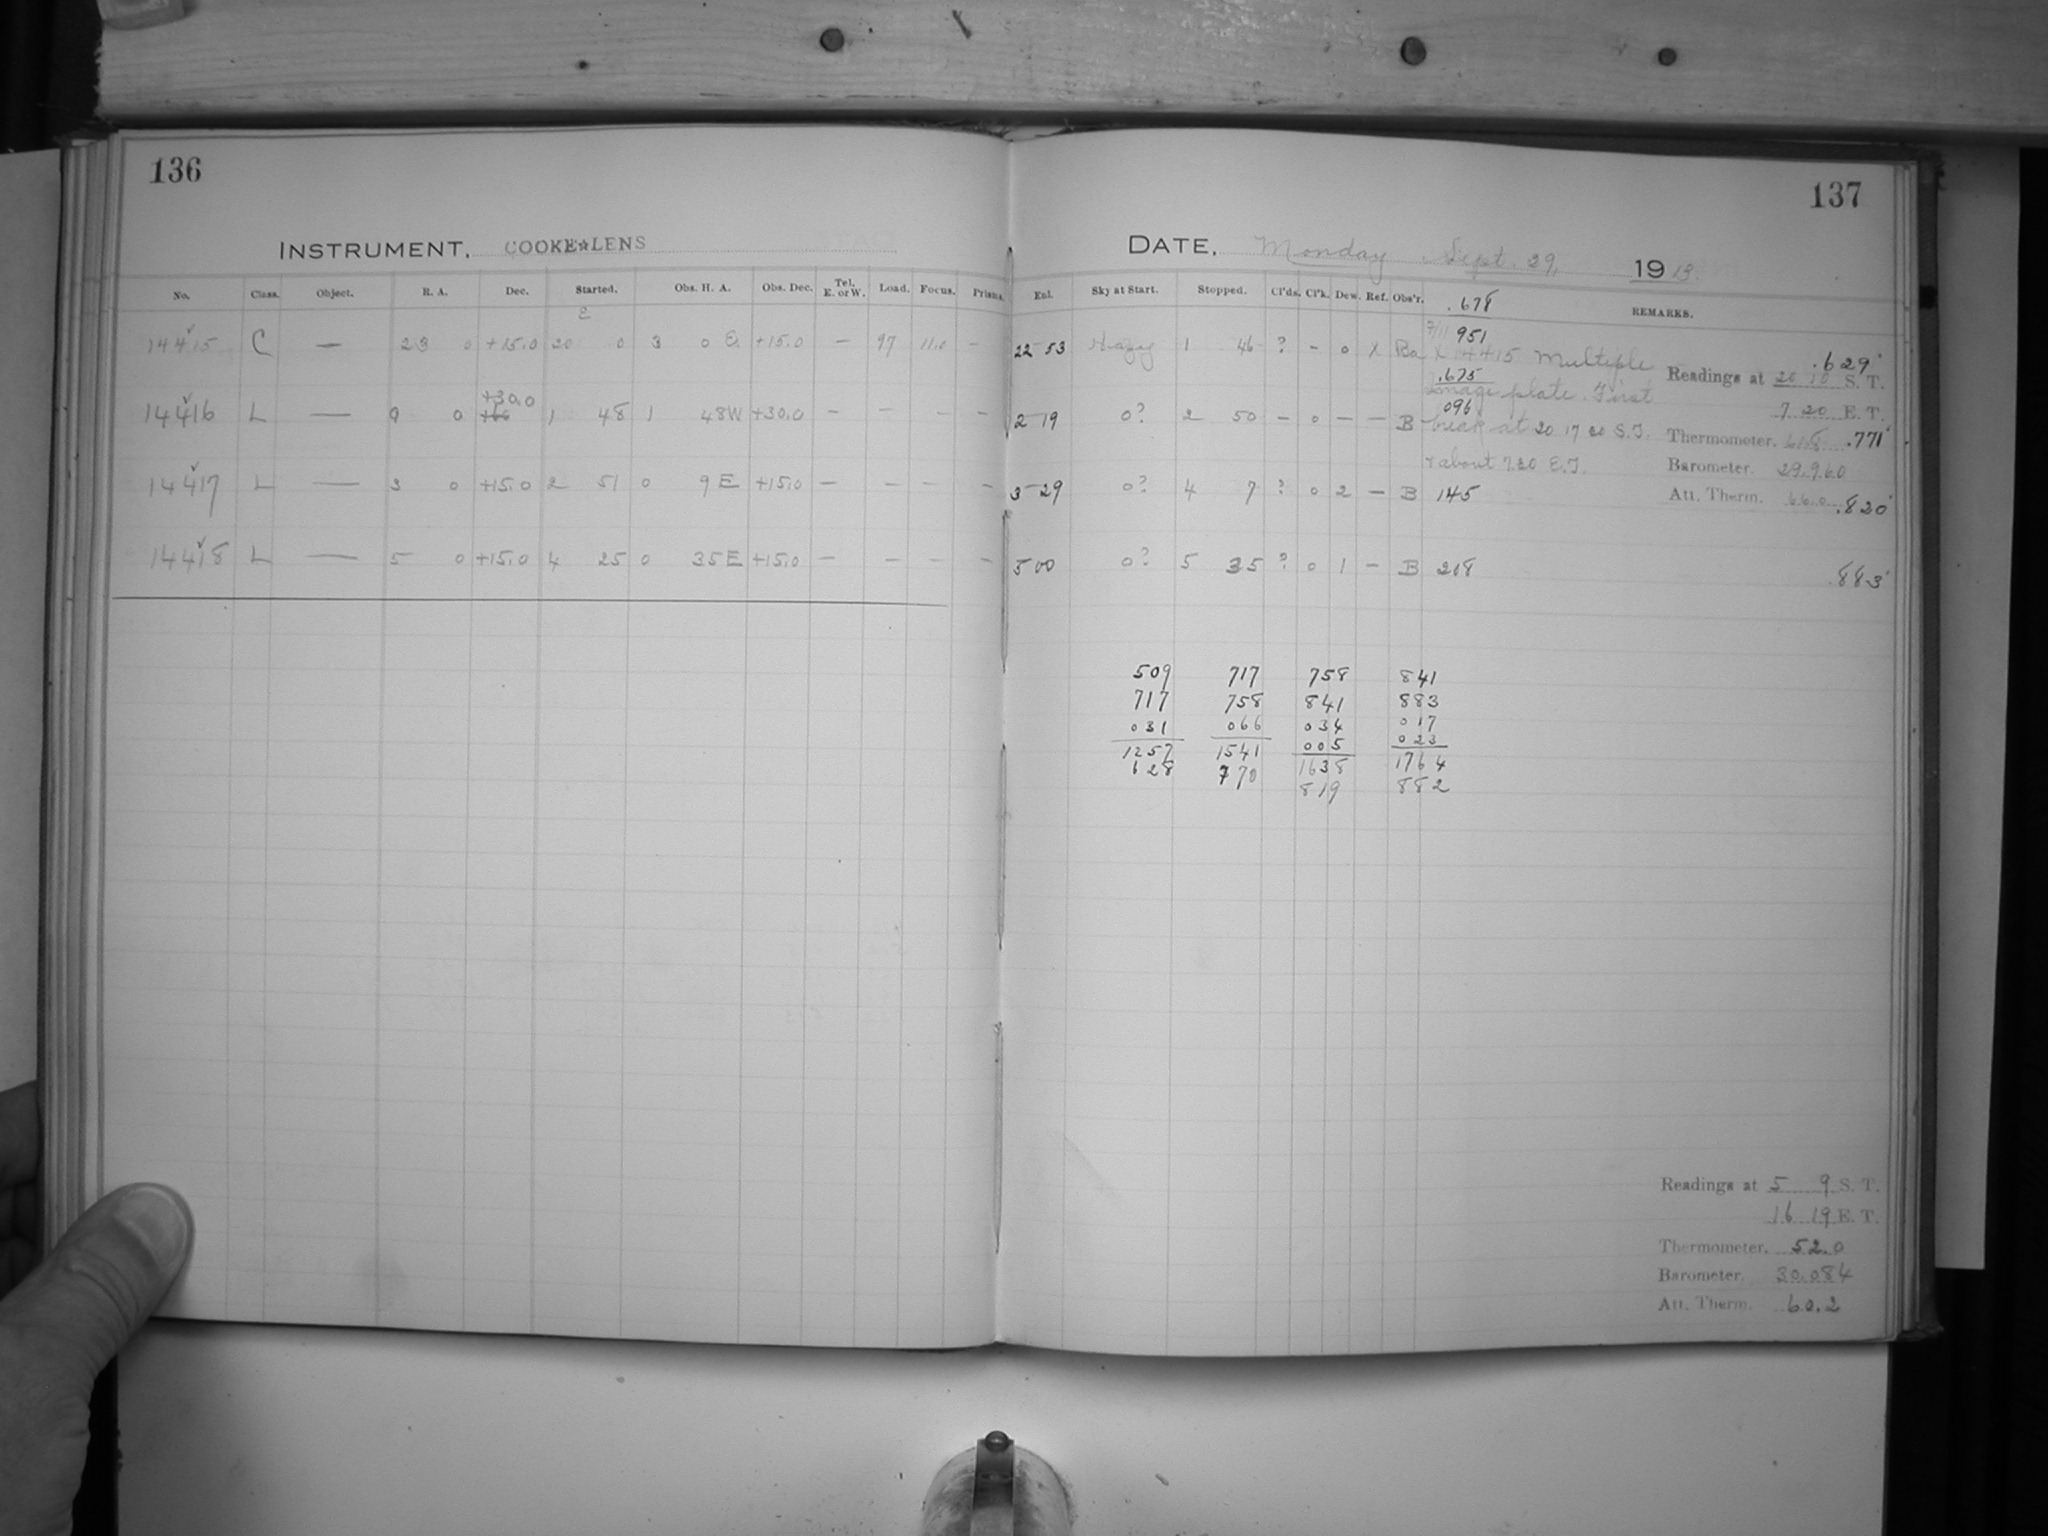 136
137
INSTRUMENT, COOKE☆LENS
DATE, Monday Sept. 29, 1913
No. Class. Object. R. A. Dec. Started. Obs. H. A. Obs. Dec. Tel. E. or W. Load. Focus. Prisms. Exl. Sky at Start. Stopped. Cl'ds. Cl'k. Dew. Ref. Obs'r. .678 REMARKS.
14415 C — 23 0 +15.0 20 0 3 0 E +15.0 — 97 11.0 — 22 53 Hazy 1 46 ? - 0 X Ba 951
X 14415 Multiple
.675
image plate. First
096
break at 20 17 20 S.T.
& about 7.30 E.T.
.629
Readings at 20 10 S. T.
7 20 E. T.
Thermometer. .771
Barometer. 29.960
Att. Therm. 66.0 .820
14416 L — 0 0 +30.0 1 48 1 48W +30.0 — — — — 2 19 0? 2 50 — 0 — — B
14417 L — 3 0 +15.0 2 51 0 9 E +15.0 — — — — 3 29 0? 4 7 ? 0 2 — B 145
14418 L — 5 0 +15.0 4 25 0 35 E +15.0 — — — — 5 00 0? 5 35 ? 0 1 — B 208
.883
509 717 758 841
717 758 841 883
031 066 034 017
005 023
1257 1541 1638 1764
628 770 819 882
Readings at 5 9 S. T.
16 19 E. T.
Thermometer. 52.0
Barometer. 30.084
Att. Therm. 60.2